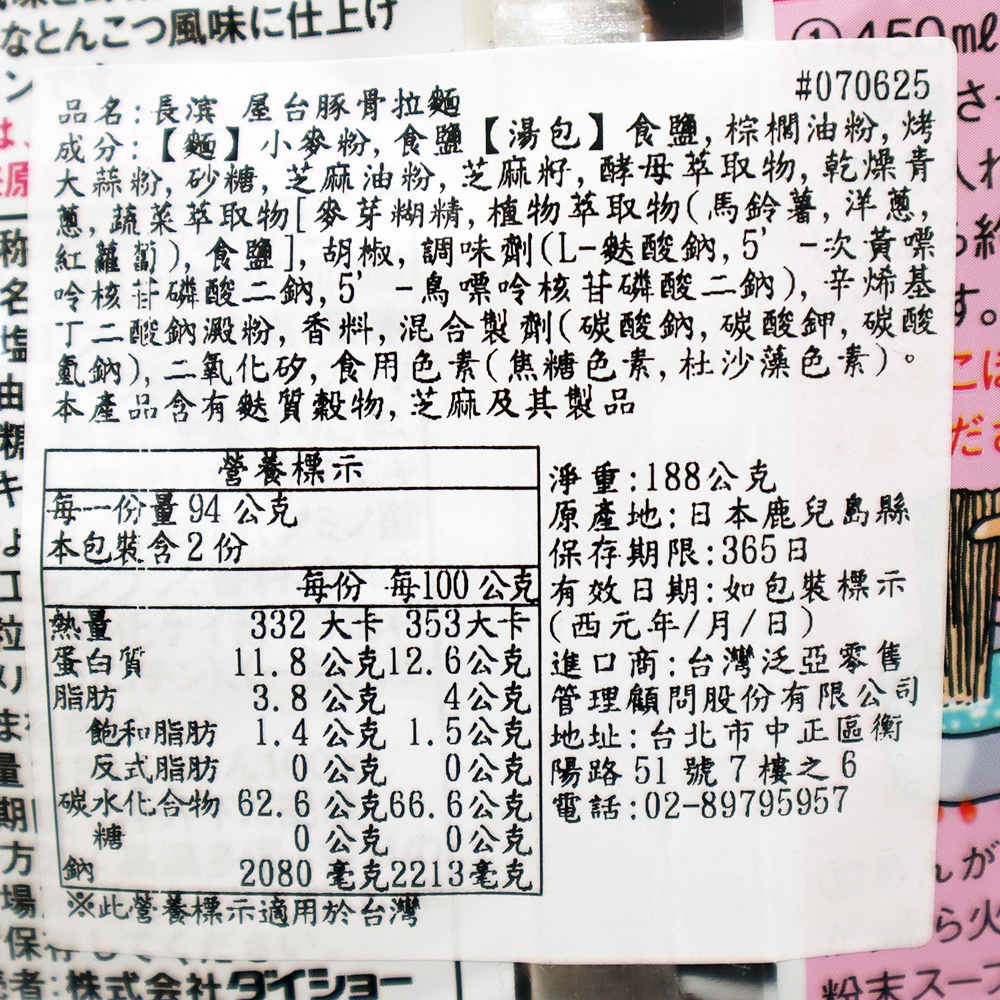 なとんこつ風味に仕上げ
#070625
品名:長滨 屋台豚骨拉麵
成分:【麵】小麥粉,食鹽【湯包】食鹽,棕櫚油粉,烤
大蒜粉,砂糖,芝麻油粉,芝麻籽,酵母萃取物,乾燥青
蔥,蔬菜萃取物[麥芽糊精,植物萃取物(馬鈴薯,洋蔥,
紅蘿蔔),食鹽],胡椒,調味劑(L-麩酸鈉,5' -次黃嘌
呤核苷磷酸二鈉,5' -鳥嘌呤核苷磷酸二鈉),辛烯基
丁二酸鈉澱粉,香料,混合製劑(碳酸鈉,碳酸鉀,碳酸
氫鈉),二氧化矽,食用色素(焦糖色素,杜沙藻色素)。
本產品含有麩質穀物,芝麻及其製品
營養標示
每一份量 94 公克
本包裝含 2 份
每份 每100 公克
熱量 332 大卡 353大卡
蛋白質 11.8 公克12.6公克
脂肪 3.8 公克 4公克
飽和脂肪 1.4 公克 1.5公克
反式脂肪 0 公克 0公克
碳水化合物 62.6 公克66.6公克
糖 0 公克 0公克
鈉 2080 毫克2213毫克
※此營養標示適用於台灣
淨重:188公克
原產地:日本鹿兒島縣
保存期限:365日
有效日期:如包裝標示
(西元年/月/日)
進口商:台灣泛亞零售
管理顧問股份有限公司
地址:台北市中正區衡
陽路 51 號 7 樓之 6
電話:02-89795957
① 450ml
者:株式会社ダイショー
粉末スープ